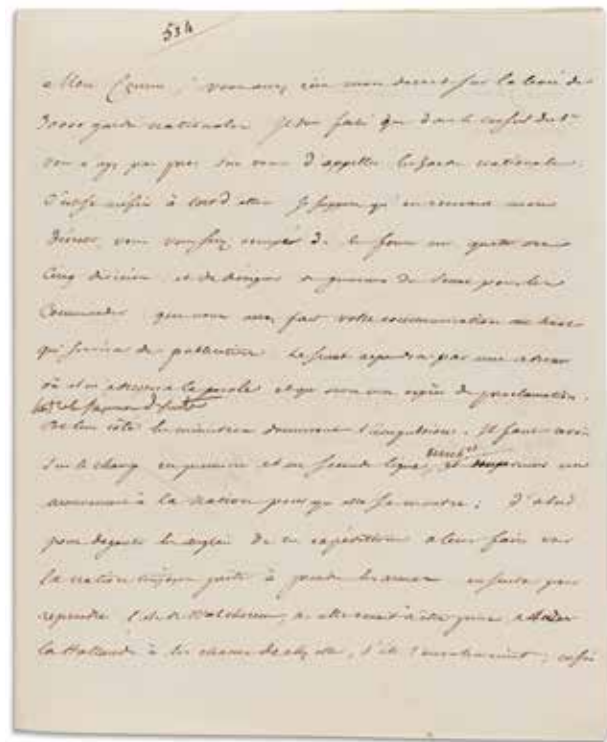 534
Mon Cousin, vous avez vu mon décret sur la levée de
30000 gardes nationales. Je suis faché que dans le conseil du 1er
vous n'ayez pas pris sur vous d'appeller les gardes nationales.
C'est se méfier à tord d'elles. Je suppose qu'en recevant mon
décret, vous vous serez occupé de les former en quatre ou
cinq divisions et de désigner des généraux du Sénat pour les
Commander que vous avez fait votre communication au Sénat
qui servira de publication. Le Sénat répondra par une adresse
où il en adressera la parole et qui sera une espèce de proclamation.
De leur côté les ministres donneront l'impulsion. Il faut avoir
Sur le champ en première et en seconde ligne, et imprimer un
mouvement à la nation pour qu'elle se montre; d'abord
pour dégouter les anglais de ces expéditions et leur faire voir
la nation toujours prête à prendre les armes ensuite pour
reprendre l'île de Walcheren, si elle venait à être prise, aider
la Hollande à les chasser de chez elle, s'ils ; enfin